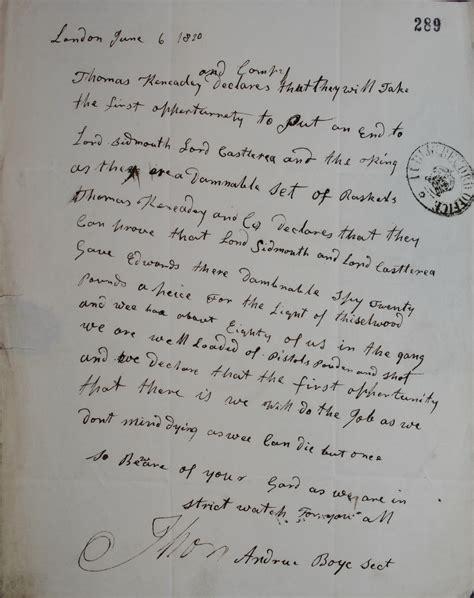 289
London June 6 1820
Thomas Keneaday and Compy Declares that they will Take
the first opportunety to put an End to
Lord Sidmouth Lord Casttlerea and the King
as they are a Damnable set of Raskels
Thomas Keneaday and Co Declares that they
Can prove that Lord Sidmouth and Lord Casttlerea
Gave Edwards there Dambnable Spy Twenty
pounds a peice For the Light of Thiselwood
and wee has about Eighty of us in the gang
we are well Loaded of Pistols Pouder and Shot
and we Declare that the first opportunity
that there is we will do the Job as we
dont mind dying as wee Can die but once
so Beare of your Gard as we are in
strict watch For you all
Thos
Andrue Boye Sect
PUBLIC RECORD OFFICE